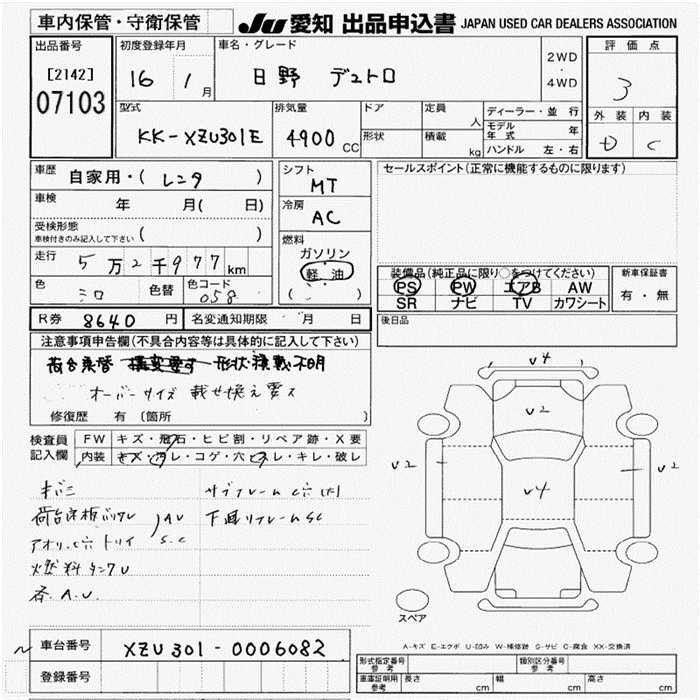 車内保管・守衛保管
JU 愛知 出品申込書 JAPAN USED CAR DEALERS ASSOCIATION
出品番号
[2142]
07103
初度登録年月
16 1月
車名・グレード
日野 デュトロ
2WD
・
4WD
評価点
3
外装 内装
D C
型式
KK-XZU301E
排気量
4900 CC
ドア
形状
定員 人
積載 kg
ディーラー・並行
モデル年式 年
ハンドル 左・右
車歴
自家用・( レンタ )
車検 年 月( 日)
受検形態
車検付きのみ記入して下さい ( )
走行 5万2千977km
色 シロ 色替 色コード 058
シフト
MT
冷房
AC
燃料
ガソリン
軽・油
( )
セールスポイント(正常に機能するものに限ります)
装備品(純正品に限り○をつけてください)
PS PW エアB AW
SR ナビ TV カワシート
新車保証書
有・無
後日品
R券 8640 円 名変通知期限 ・ 月 日
注意事項申告欄(不具合内容等は具体的に記入して下さい)
形状積載不明
オーバーサイズ 載せ換え要ス
修復歴 有 〔箇所
検査員
記入欄
FW キズ・飛石・ヒビ割・リペア跡・X要
内装 キズ・汚レ・コゲ・穴・スレ・キレ・破レ
サブフレームC穴(大)
荷台床板ハクレ AU
下廻リフレームSC
アオリ.C穴トリイ S.C
燃料タンクU
各.A.U.
V4
V2
V2
V2
V4
スペア
A-キズ E-エクボ U-凹み W-補修跡 S-サビ C-腐食 XX-交換済
車台番号 XZU301-0006082
登録番号
形式指定番号 参考
類別区分番号 参考
車庫証明用 参考 長さ cm 幅 cm 高さ cm